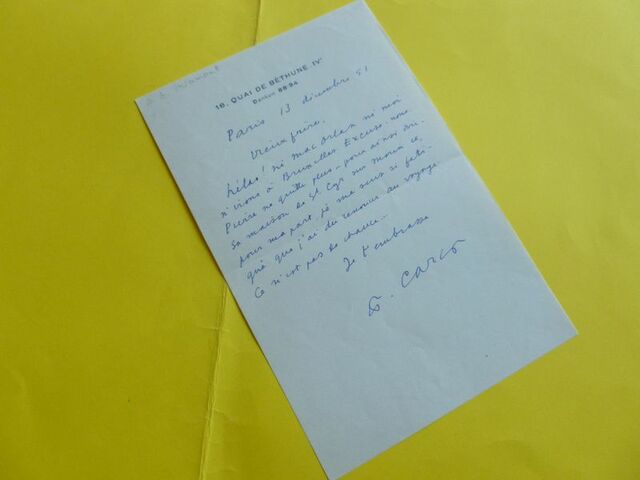 18, QUAI DE BÉTHUNE. IVᵉ
Danton 88-94
Paris 13 décembre 51
Vieux frère,
hélas! ni Mac Orlan ni moi
n'irons à Bruxelles. Excuse-nous.
Pierre ne quitte plus, pour ainsi dire,
sa maison de St Cyr sur Morin et,
pour ma part, je me sens si fati-
gué que j'ai dû renoncer au voyage.
Ce n'est pas de chance...
Je t'embrasse
F. Carco